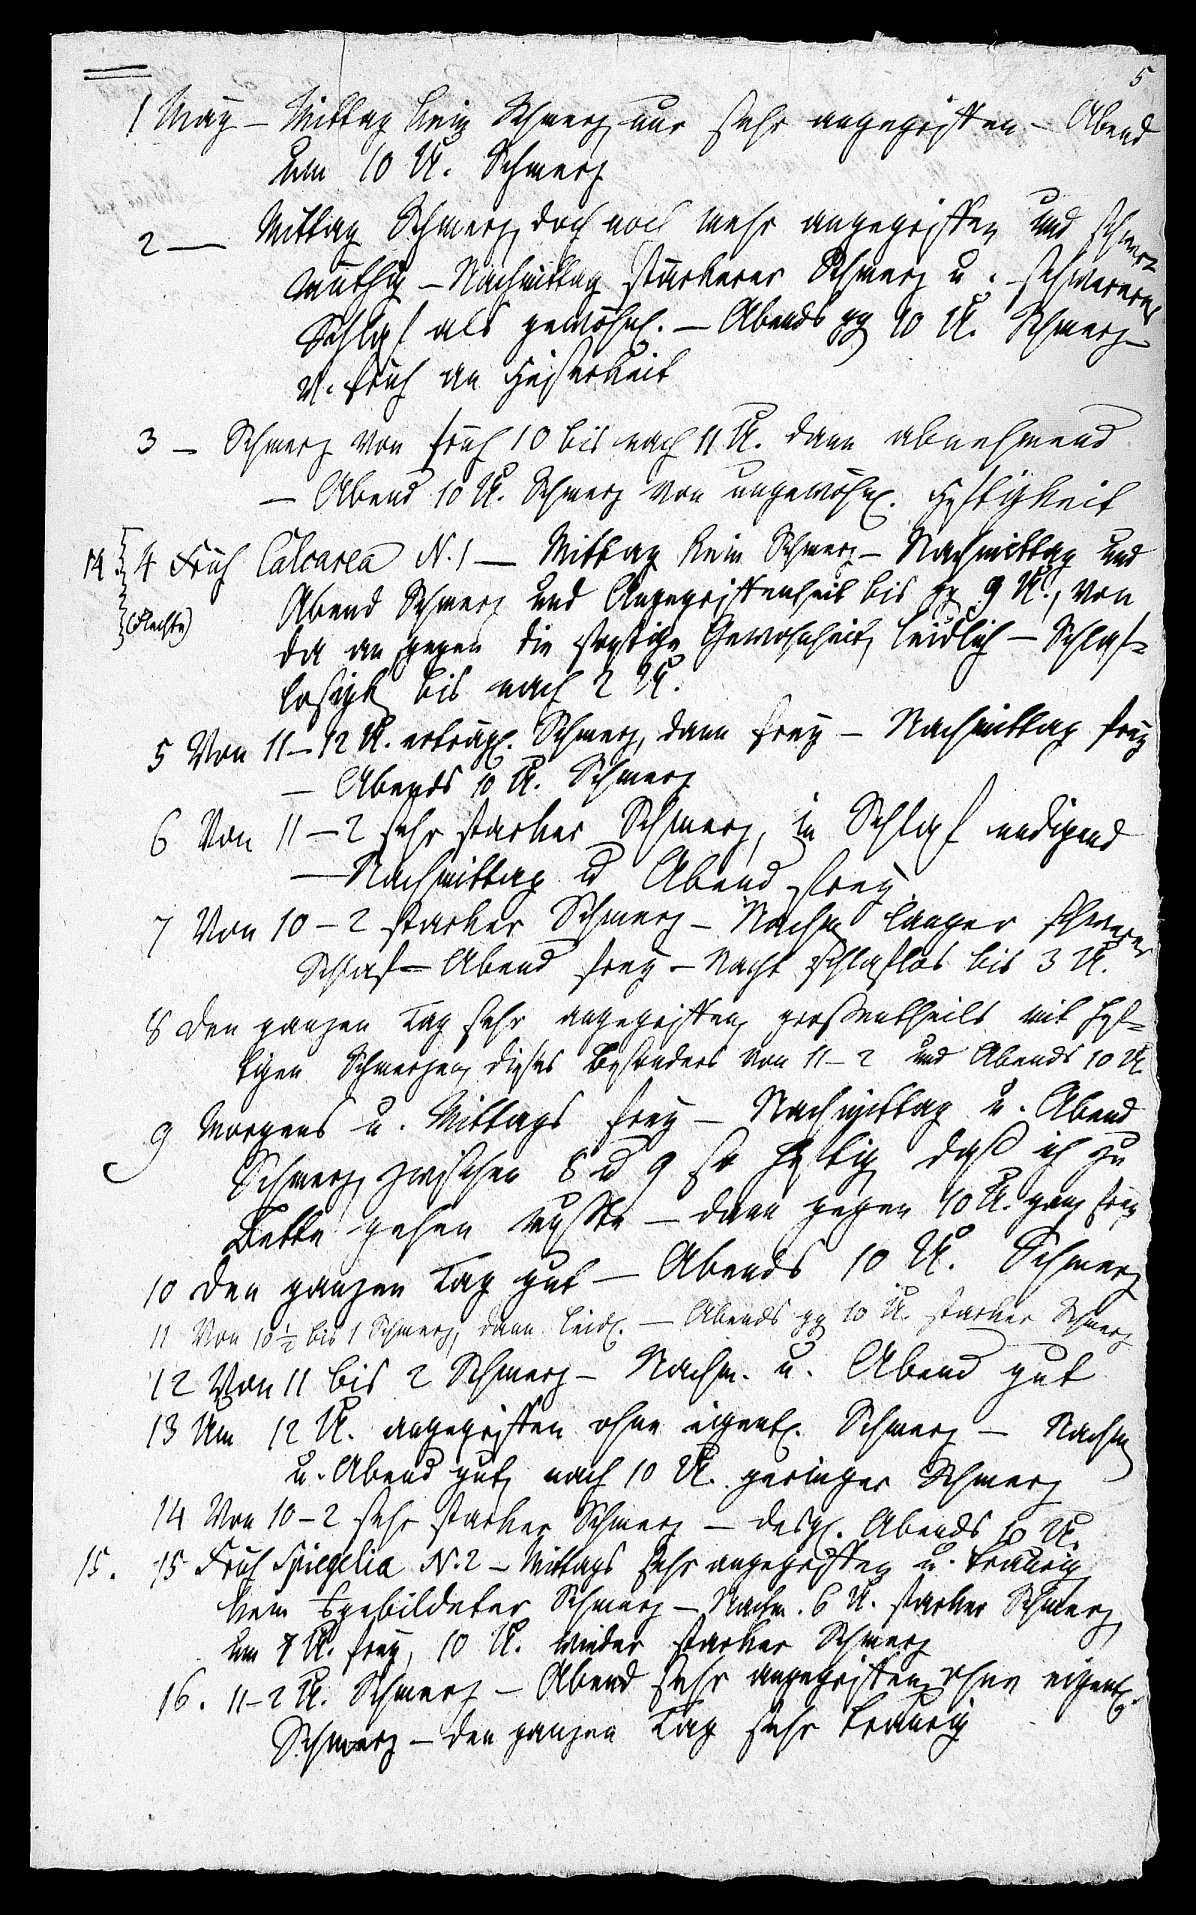 5
1 May – Mittag kein Schmerz, nur sehr angegriffen – Abend
um 10 U. Schmerz
2 — Mittag Schmerz, doch noch mehr angegriffen und schwer=
müthig – Nachmittag stärkerer Schmerz u. schwererer
Schlaf als gewöhnl. – Abends gg 10 U. Schmerz
u. früh an Heiserkeit
3 – Schmerz von früh 10 bis nach 11 U. dann abnehmend
– Abend 10 U. Schmerz von ungewöhnl. Heftigkeit
14. 4 Früh Calcarea N. 1 – Mittag kein Schmerz – Nachmittag und
(Flechte) Abend Schmerz und Angegriffenheit bis gg 9 U., von
da an gegen die sonstige Gewohnheit, leidlich – Schlaf=
losigk. bis nach 2 U.
5 Von 11–12 U. erträgl. Schmerz, dann frey – Nachmittag frey
– Abends 10 U. Schmerz
6 Von 11–2 sehr starker Schmerz, in Schlaf endigend
– Nachmittag u Abend frey
7 Von 10–2 starker Schmerz – Nachm langer schwerer
Schlaf – Abend frey – Nacht schlaflos bis 3 U.
8 den ganzen Tag sehr angegriffen, großentheils mit hef=
tigen Schmerzen, dieses besonders von 11–2 und Abends 10 U
9 Morgens u. Mittags frey – Nachmittag u. Abend
Schmerz, zwischen 8 u 9 so heftig, daß ich zu
Bette gehen mußte – dann gegen 10 U. ganz frey
10 den ganzen Tag gut – Abends 10 U. Schmerz
11 Von 10 ½ bis 1 Schmerz, dann leidl. – Abends gg 10 U. starker Schmerz
12 Von 11 bis 2 Schmerz – Nachm. u. Abend gut
13 Um 12 U. angegriffen ohne eigentl. Schmerz – Nachm
u. Abend gut, nach 10 U. geringer Schmerz
14 Von 10–2 sehr starker Schmerz – desgl. Abends 10 U.
15. 15 Früh Spigelia N. 2 – Mittags sehr angegriffen u. traurig,
kein ausgebildeter Schmerz – Nachm. 6 U. starker Schmerz,
um 8 U. frey, 10 U. wieder starker Schmerz
16. 11–2 U. Schmerz – Abend sehr angegriffen, ohne eigentl.
Schmerz – den ganzen Tag sehr traurig